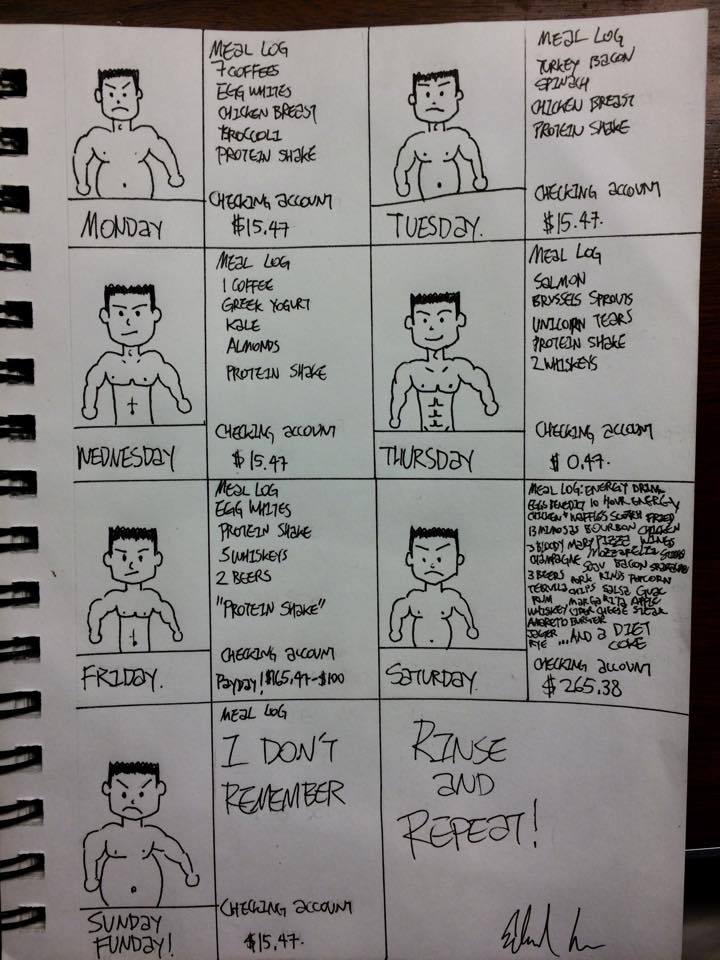 MEAL LOG
7 COFFEES
EGG WHITES
CHICKEN BREAST
BROCCOLI
PROTEIN SHAKE
CHECKING ACCOUNT
$15.47
MONDAY
MEAL LOG
TURKEY BACON
SPINACH
CHICKEN BREAST
PROTEIN SHAKE
CHECKING ACCOUNT
$15.47.
TUESDAY.
MEAL LOG
1 COFFEE
GREEK YOGURT
KALE
ALMONDS
PROTEIN SHAKE
CHECKING ACCOUNT
$15.47
WEDNESDAY
MEAL LOG
SALMON
BRUSSELS SPROUTS
UNICORN TEARS
PROTEIN SHAKE
2 WHISKEYS
CHECKING ACCOUNT
$0.47.
THURSDAY
MEAL LOG
EGG WHITES
PROTEIN SHAKE
5 WHISKEYS
2 BEERS
"PROTEIN SHAKE"
CHECKING ACCOUNT
PAYDAY! $ -$100
FRIDAY.
MEAL LOG: ENERGY DRINK
EGGS BENEDICT 10 HOUR ENERGY
CHICKEN & WAFFLES FRIED
13 MIMOSAS BOURBON CHICKEN
3 BLOODY MARY PIZZA WINGS
CHAMPAGNE MOZZARELLA STICKS
BACON
3 BEERS PORK RINDS POPCORN
TEQUILA CHIPS SALSA GUAC
RUM MARGARITA APPLE
WHISKEY CIDER CHEESE STEAK
AMARETO BURGER
JAGER ...AND A DIET
RYE COKE
CHECKING ACCOUNT
$265.38
SATURDAY.
MEAL LOG
I DON'T
REMEMBER
CHECKING ACCOUNT
$15.47.
SUNDAY
FUNDAY!
RINSE
AND
REPEAT!